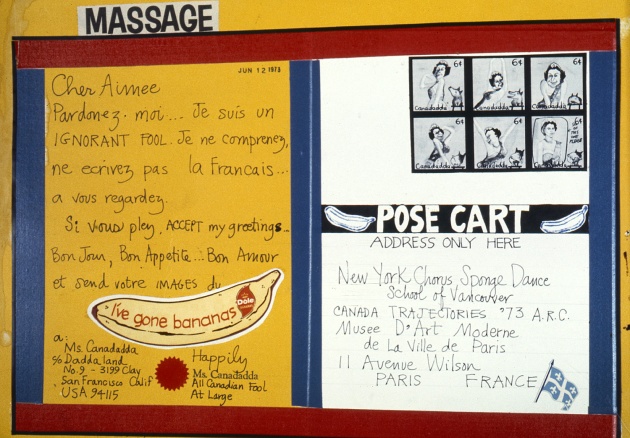 MASSAGE
JUN 12 1973
Cher Aimee
Pardonez-moi... Je suis un
IGNORANT FOOL. Je ne comprenez,
ne ecrivez pas la Francais...
a vous regardez.
Si vous pley, ACCEPT my greetings...
Bon Jour, Bon Appetite... Bon Amour
et send votre IMAGES du
Dole
I've gone bananas
a:
Ms. Canadadda
c/o Daddaland
No. 9 - 3199 Clay
San Francisco Calif
USA 94115
Happily
Ms. Canadadda
All Canadian Fool
At Large
6¢ 6¢ 6¢
Canadadda Canadadda Canadadda
6¢ 6¢ 6¢
Canadadda Canadadda
POSE CART
ADDRESS ONLY HERE
New York Chorus, Sponge Dance
School of Vancouver
CANADA TRAJECTORIES '73 A.R.C.
Musee D'Art Moderne
de La Ville de Paris
11 Avenue Wilson
PARIS FRANCE